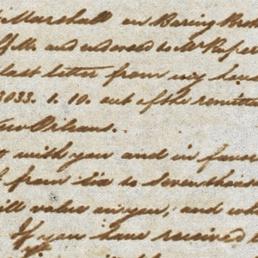 Marshall on Baring Broth
and endorsed to Mr Ruper
last letter from my hous
3033. 1. 10. out of the remitta
New Orleans.
with you and in favor
from six to seven thousan
will value on you, and wh
If you have received